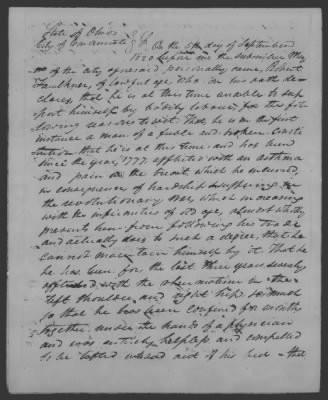 State of Ohio
City of Cincinnati } SS. On the 5th day of September
1820 before me the subscriber May
or of the city aforesaid personally came, Robert
Faulkner, of lawful age, who on his oath de
clares, that he is at this time unable to sup
port himself by bodily labour, for the fol
lowing reasons to wit. That he is in the first
instance a man of a feeble and broken consti
tution that he is at this time and has been
since the year, 1777, afflicted with an asthma
and pain in the breast which he incurred,
in consequence of hardship & suffering in
the revolutionary war, which increasing
with the infirmities of old age, almost wholly
prevents him from following his trade
and actually does to such a degree that he
cannot maintain himself by it. That he
he has been for the last three years severely
afflicted with the rheumatism in the
left shoulder and right hip so much
so that he has been confined for months
together, under the hands of a physician
and was entirely helpless and compelled
to be lifted in and out of his bed - that